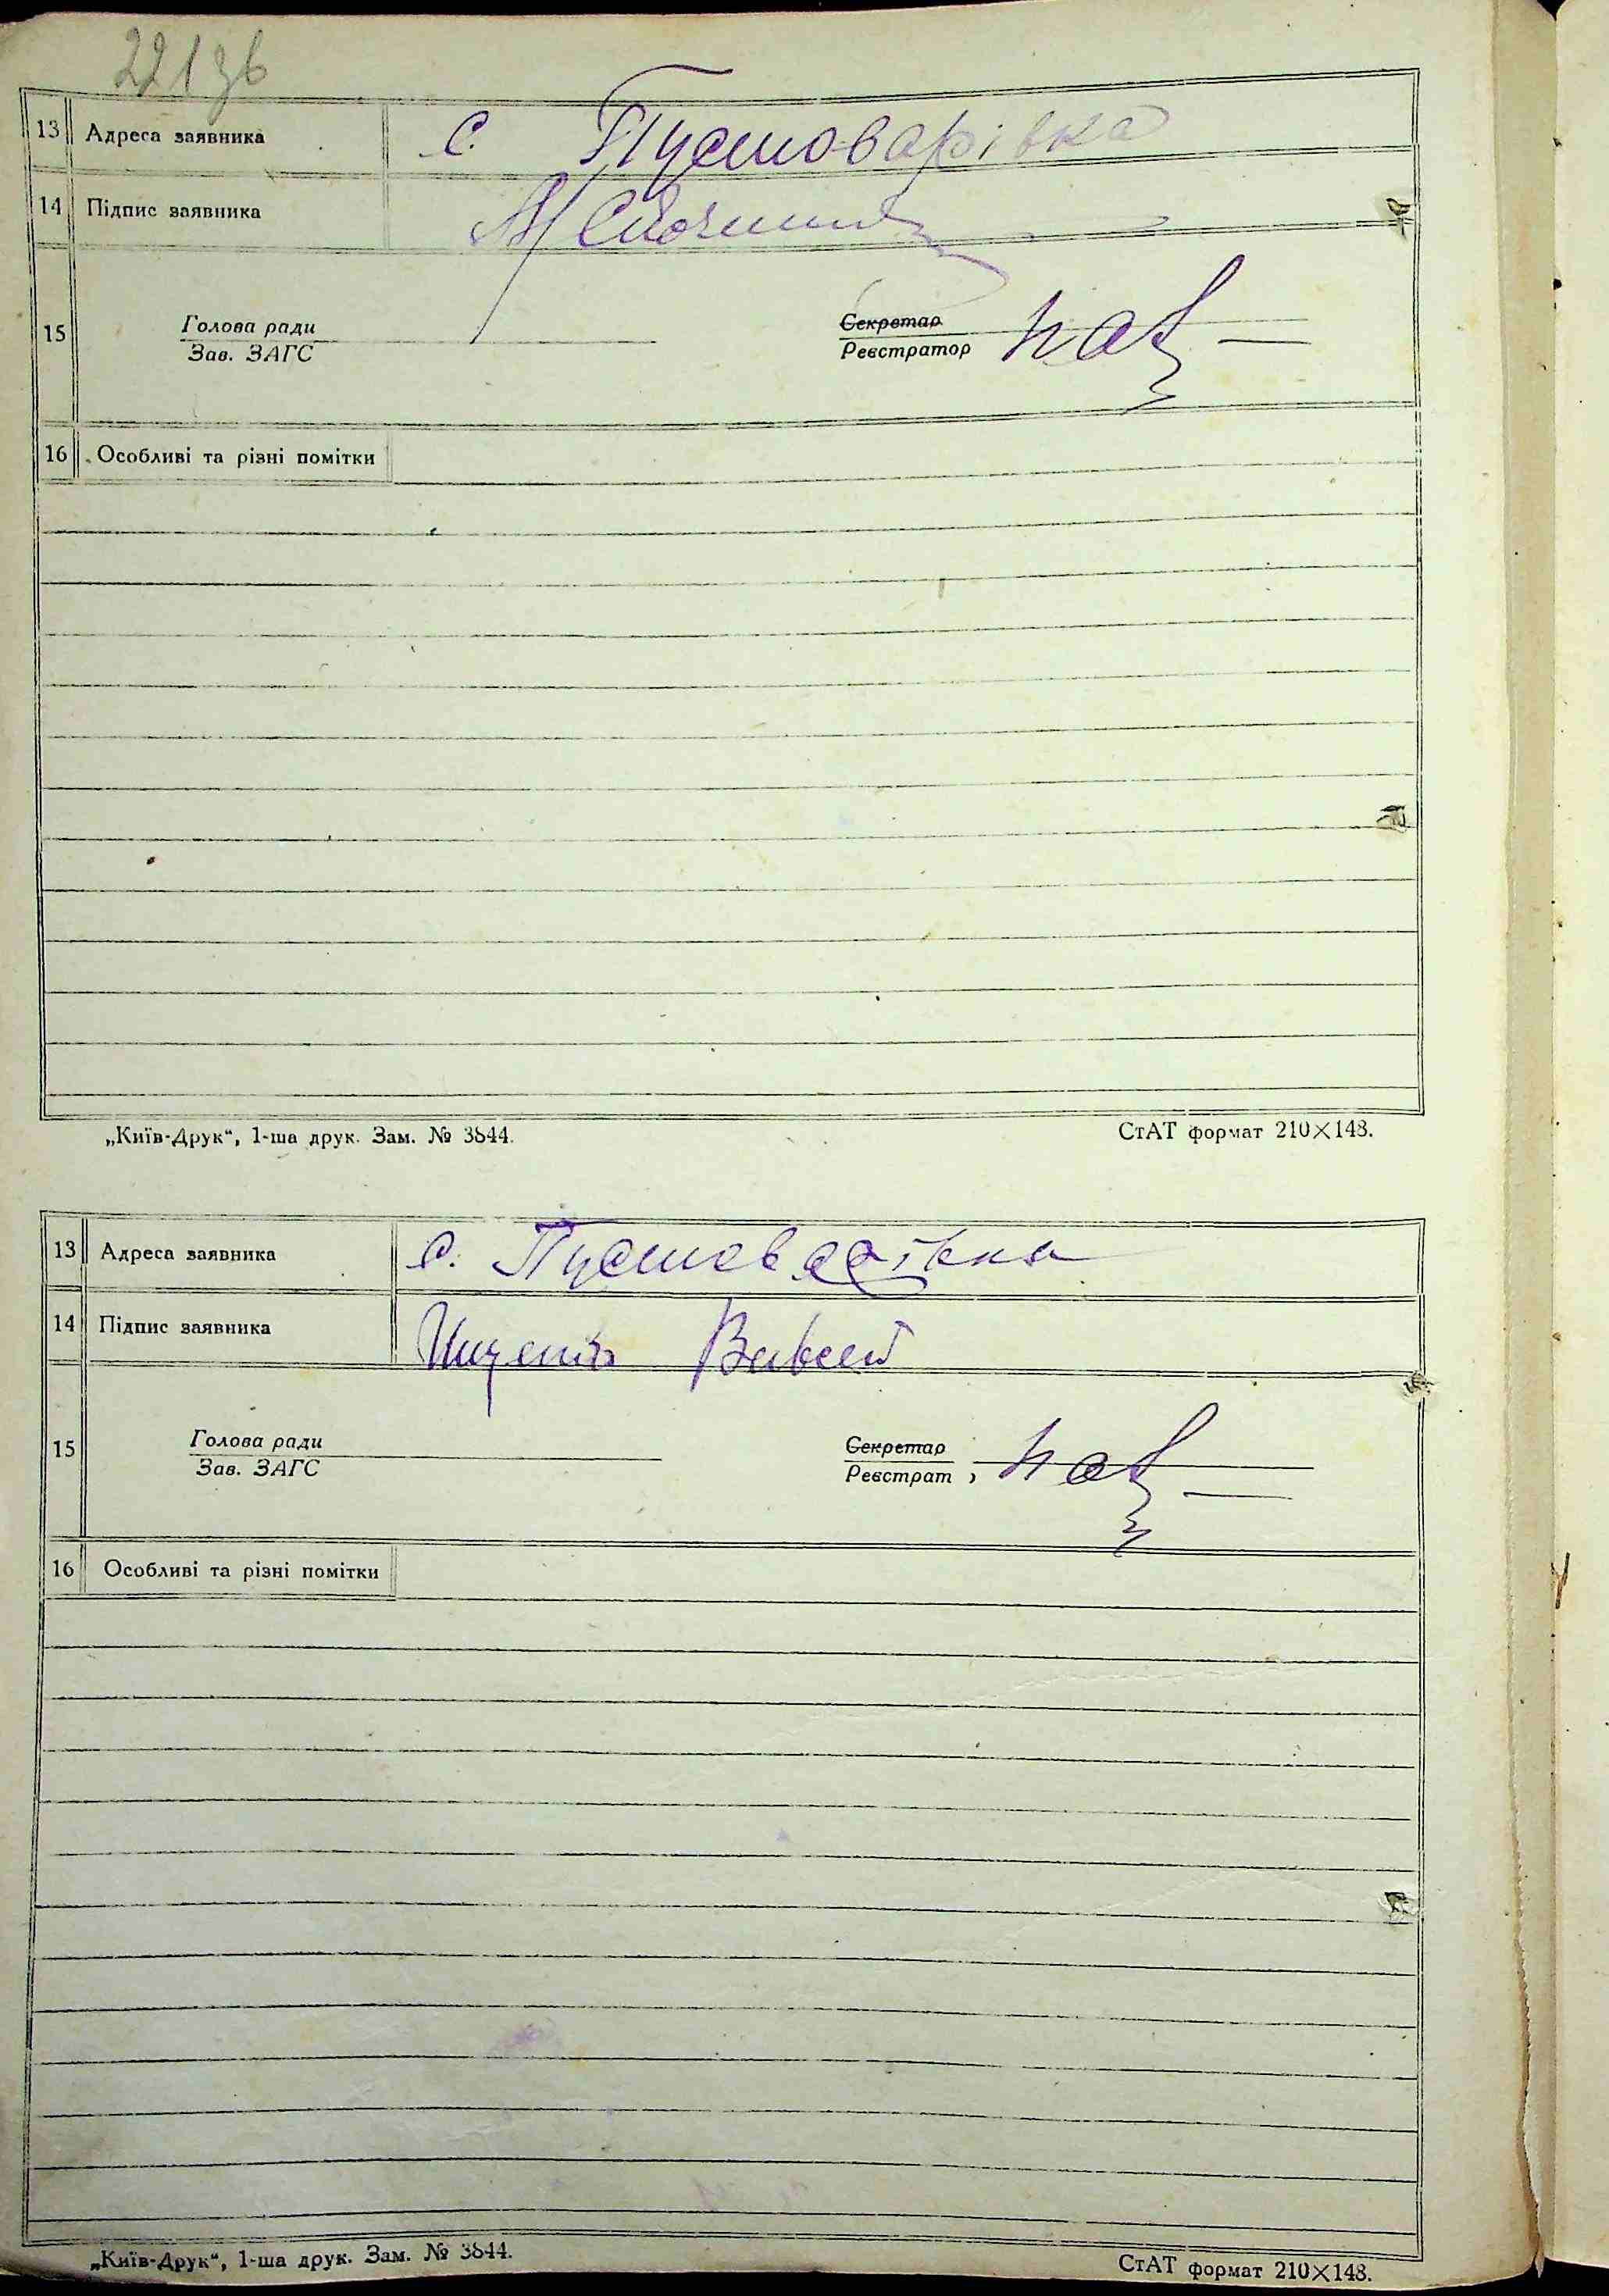 221зв
13 Адреса заявника с. Пустоварівка
14 Підпис заявника
15 Голова ради Секретар
Зав. ЗАГС Реєстратор
16 Особливі та різні помітки
„Київ-Друк“, 1-ша друк. Зам. № 3844. СтАТ формат 210×148.
13 Адреса заявника с. Пустоварівка
14 Підпис заявника Ищенко
15 Голова ради Секретар
Зав. ЗАГС Реєстрат
16 Особливі та різні помітки
„Київ-Друк“, 1-ша друк. Зам. № 3844. СтАТ формат 210×148.